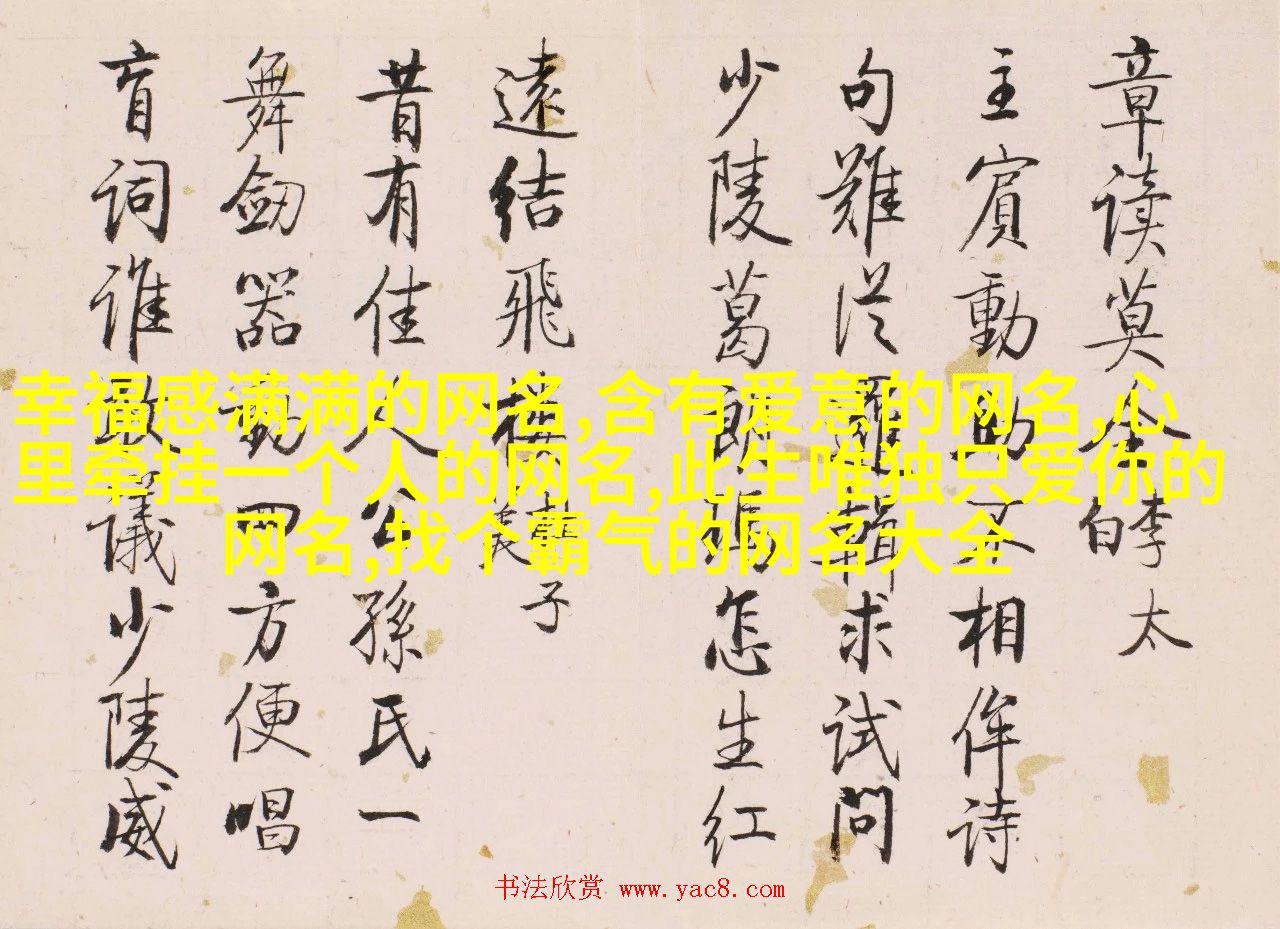 章读莫全李太白
主賓動助不相侔詩
句難從 輯求試問
少陵葛 怎生红
遠結飛樓 子
昔有佳人公孫氏一
舞劔器動四方便唱
盲词谁敢議少陵威
幸福感满满的网名,含有爱意的网名,心
里牵挂一个人的网名,此生唯独只爱你的
网名,找个霸气的网名大全
书法欣赏 www.yac8.com